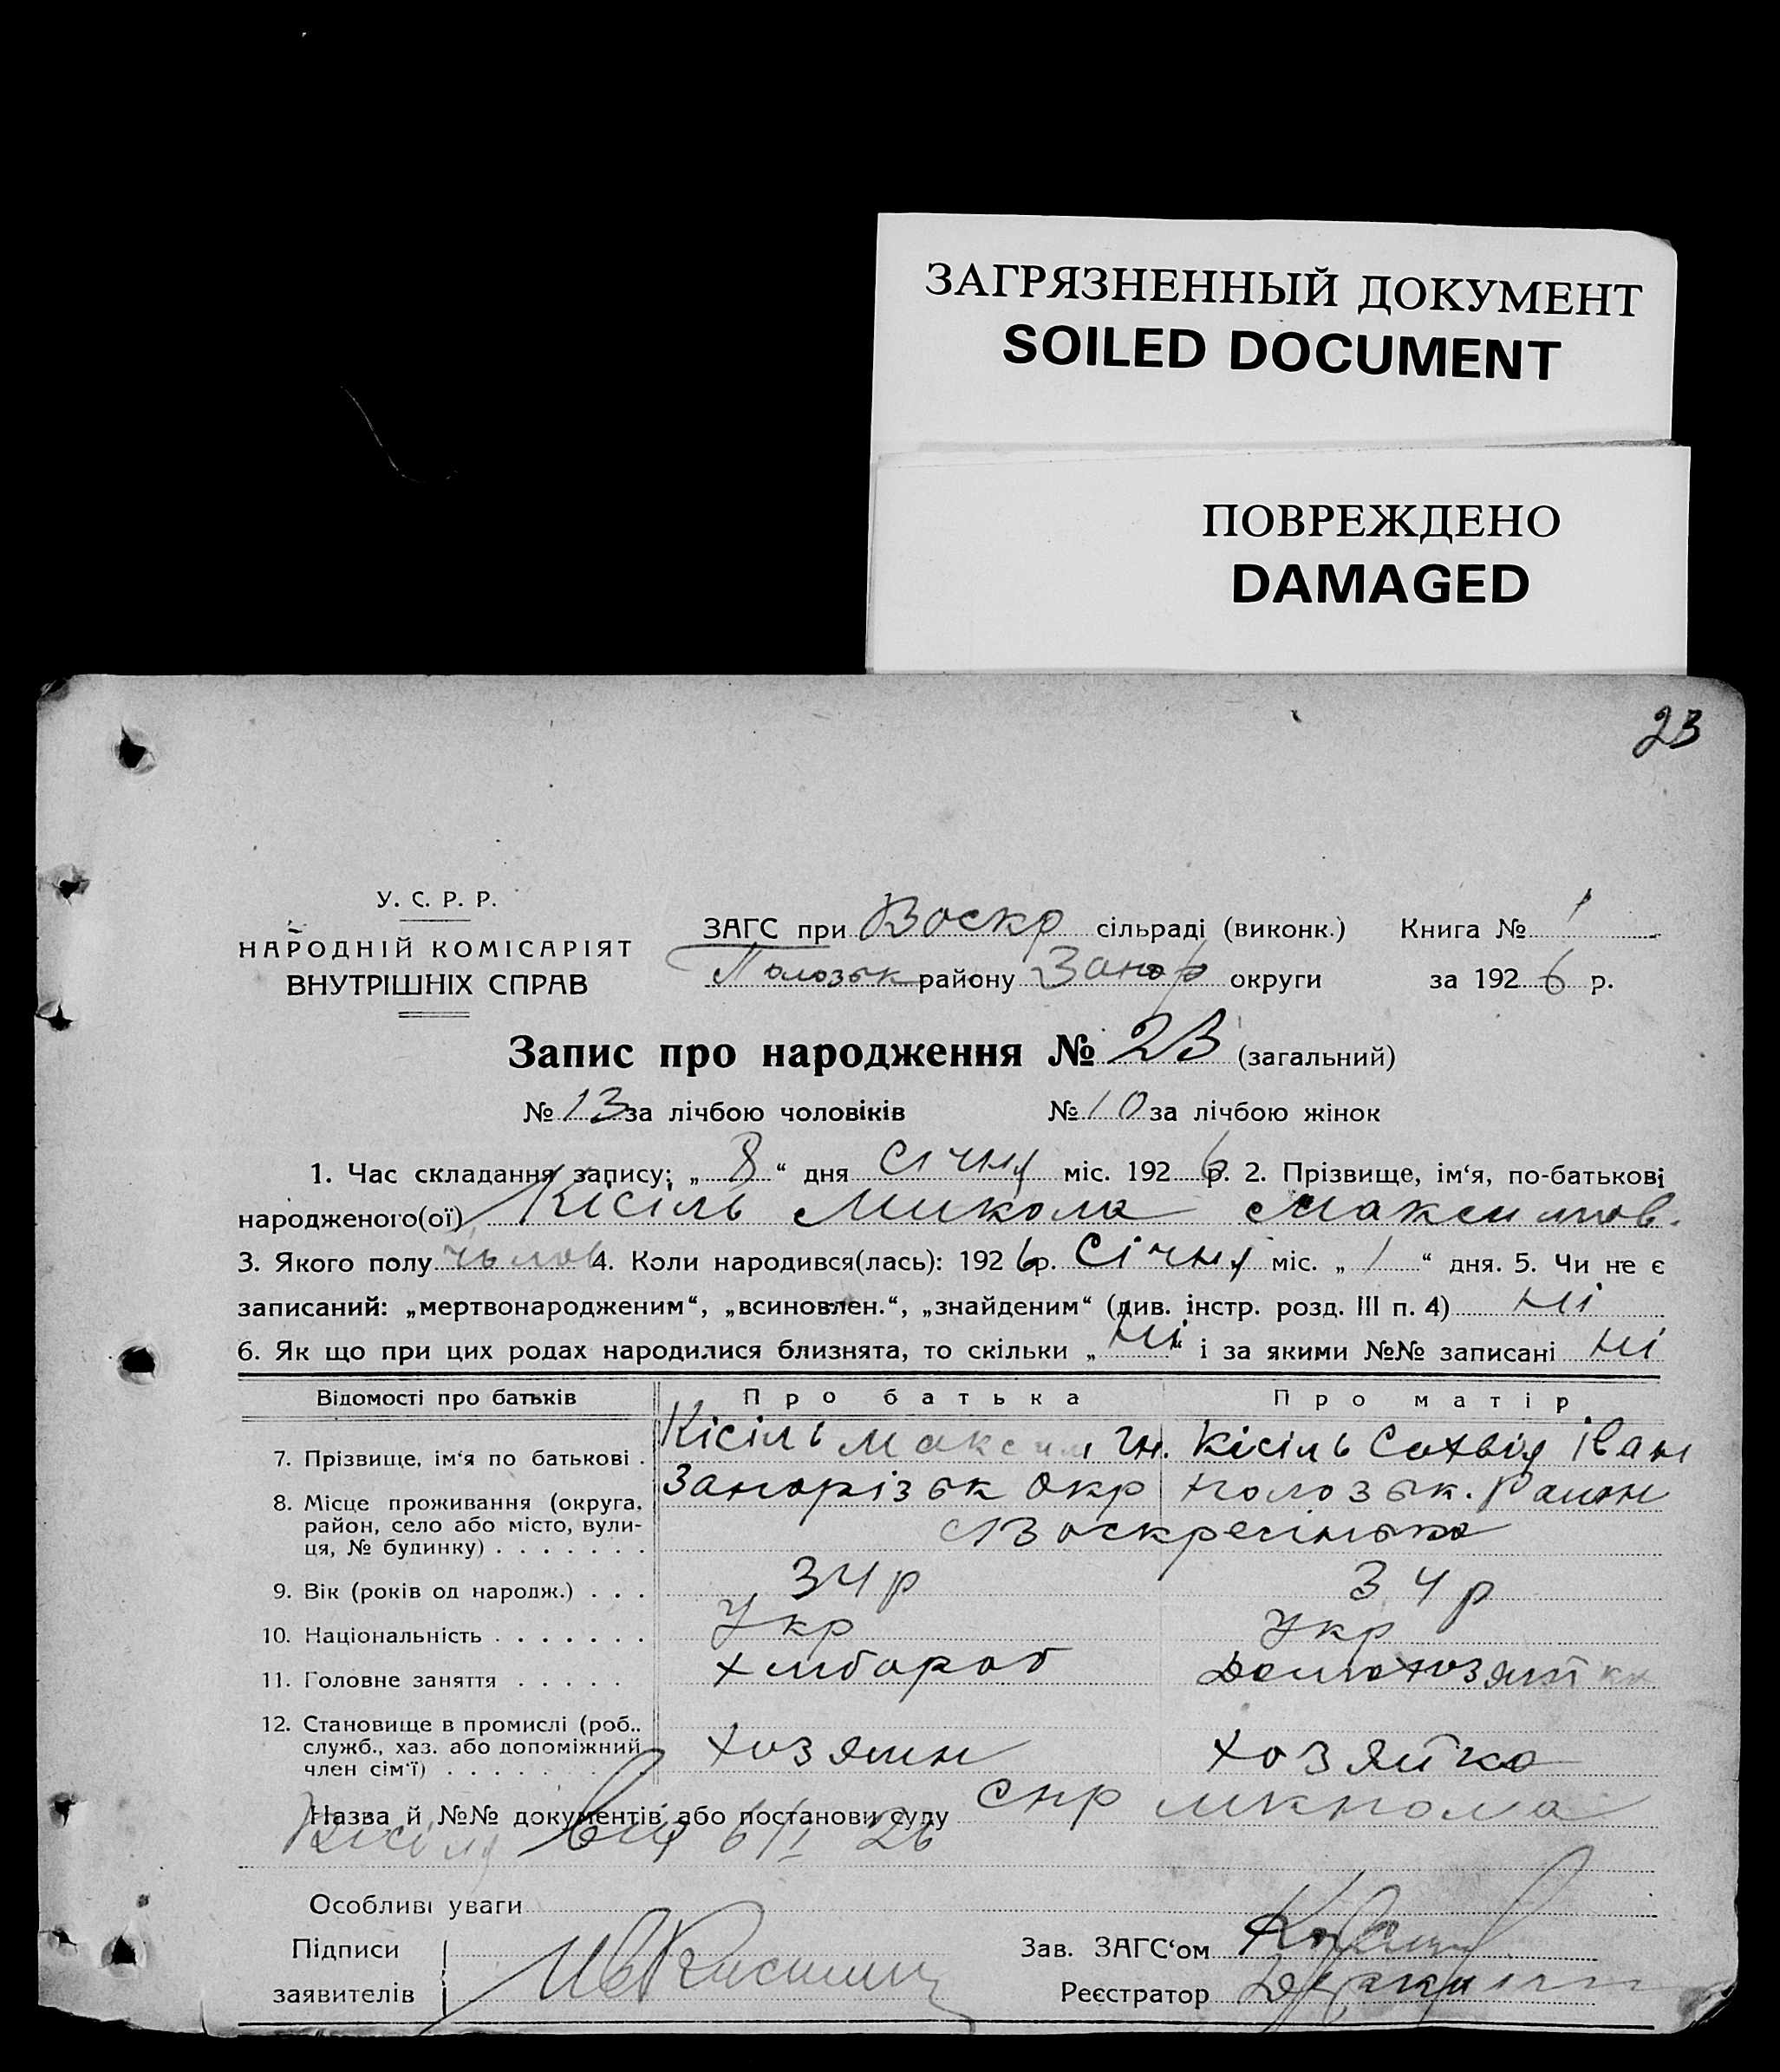 ЗАГРЯЗНЕННЫЙ ДОКУМЕНТ
SOILED DOCUMENT
ПОВРЕЖДЕНО
DAMAGED
23
У. С. Р. Р.
НАРОДНІЙ КОМІСАРІЯТ
ВНУТРІШНІХ СПРАВ
ЗАГС при Воскр сільраді (виконк.) Книга № 1
Полозьк району Запор округи за 1926 р.
Запис про народження № 23 (загальний)
№ 13 за лічбою чоловіків № 10 за лічбою жінок
1. Час складання запису: „ 8 “ дня січня міс. 1926 р. 2. Прізвище, ім‘я, по-батькові
народженого(ої) Кісіль Микола Максимов.
3. Якого полу чолов 4. Коли народився(лась): 1926 р. Січня міс. „ 1 “ дня. 5. Чи не є
записаний: „мертвонародженим“, „всиновлен.“, „знайденим“ (див. інстр. розд. III п. 4) ні
6. Як що при цих родах народилися близнята, то скільки „ ні “ і за якими №№ записані ні
Відомості про батьків Про батька Про матір
7. Прізвище, ім‘я по батькові . Кісіль Максим Кісіль Сохвія Іван
8. Місце проживання (округа, Запорізьк Окр Полозьк. Район
район, село або місто, вули-
ця, № будинку) . . . . . . .
9. Вік (років од народж.) . . . 34 р 34 р
10. Національність . . . . . . . Укр Укр
11. Головне заняття . . . . . Хлібороб Домохозяйка
12. Становище в промислі (роб.,
служб., хаз. або допоміжний хозяин хозяйка
член сім‘ї) . . . . . . . .
Назва й №№ документів або постанови суду спр
Кісіля 6/I 26
Особливі уваги
Підписи
Зав. ЗАГС‘ом
заявителів
Реєстратор